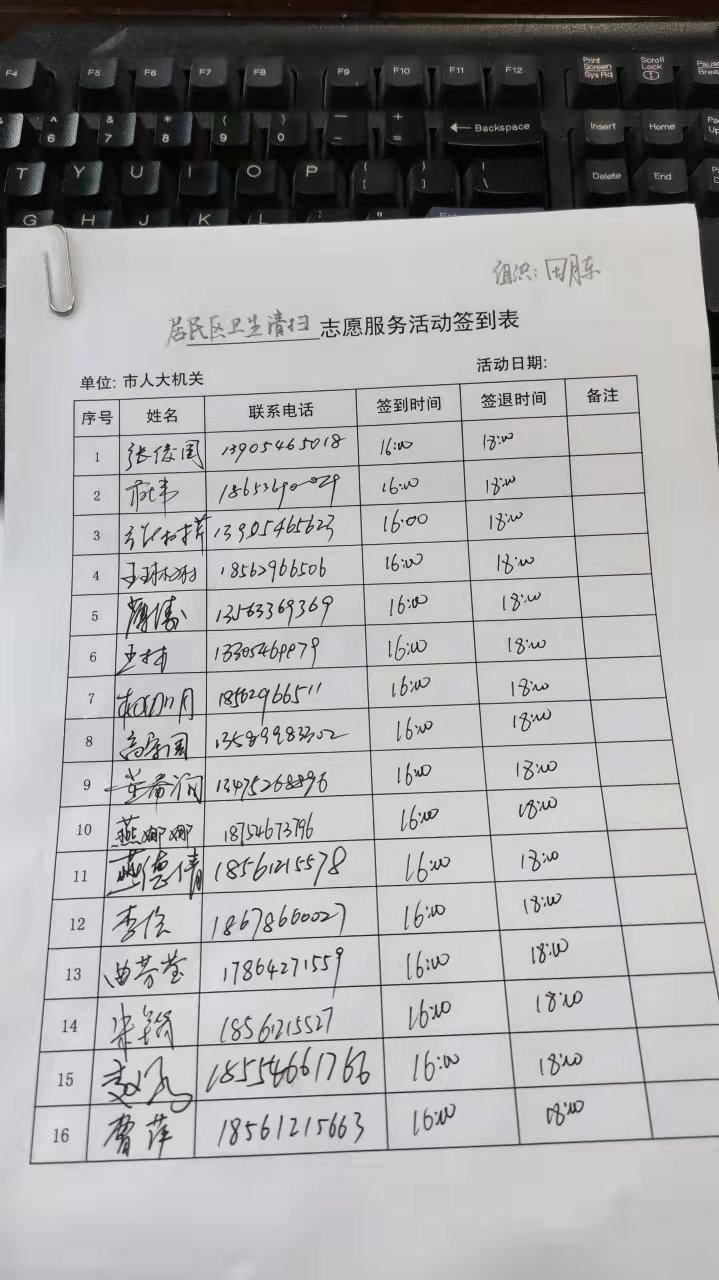 F4 F5 F6 F7 F8 F9 F10 F11 F12 Print Screen Sys Rq Scroll Lock Pause
^ 6 & 7 * 8 ( 9 ) 0 — + = Backspace Insert Home
T Y U I O P { [ } ] | \ Delete End
G H J K L
组织: 田月东
居民区卫生清扫 志愿服务活动签到表
单位: 市人大机关 活动日期:
序号 姓名 联系电话 签到时间 签退时间 备注
1 张俊国 13905465018 16:00 18:00
2 16:00 18:00
3 13905465623 16:00 18:00
4 18562966506 16:00 18:00
5 13563369369 16:00 18:00
6 王村 16:00 18:00
7 18562966511 16:00 18:00
8 高宗国 13589983302 16:00 18:00
9 13475268896 16:00 18:00
10 燕娜娜 18754673796 16:00 18:00
11 燕德倩 18561215578 16:00 18:00
12 18678660027 16:00 18:00
13 曲芳莹 17864271559 16:00 18:00
14 18561215527 16:00 18:00
15 18554661766 16:00 18:00
16 曹萍 18561215663 16:00 18:00